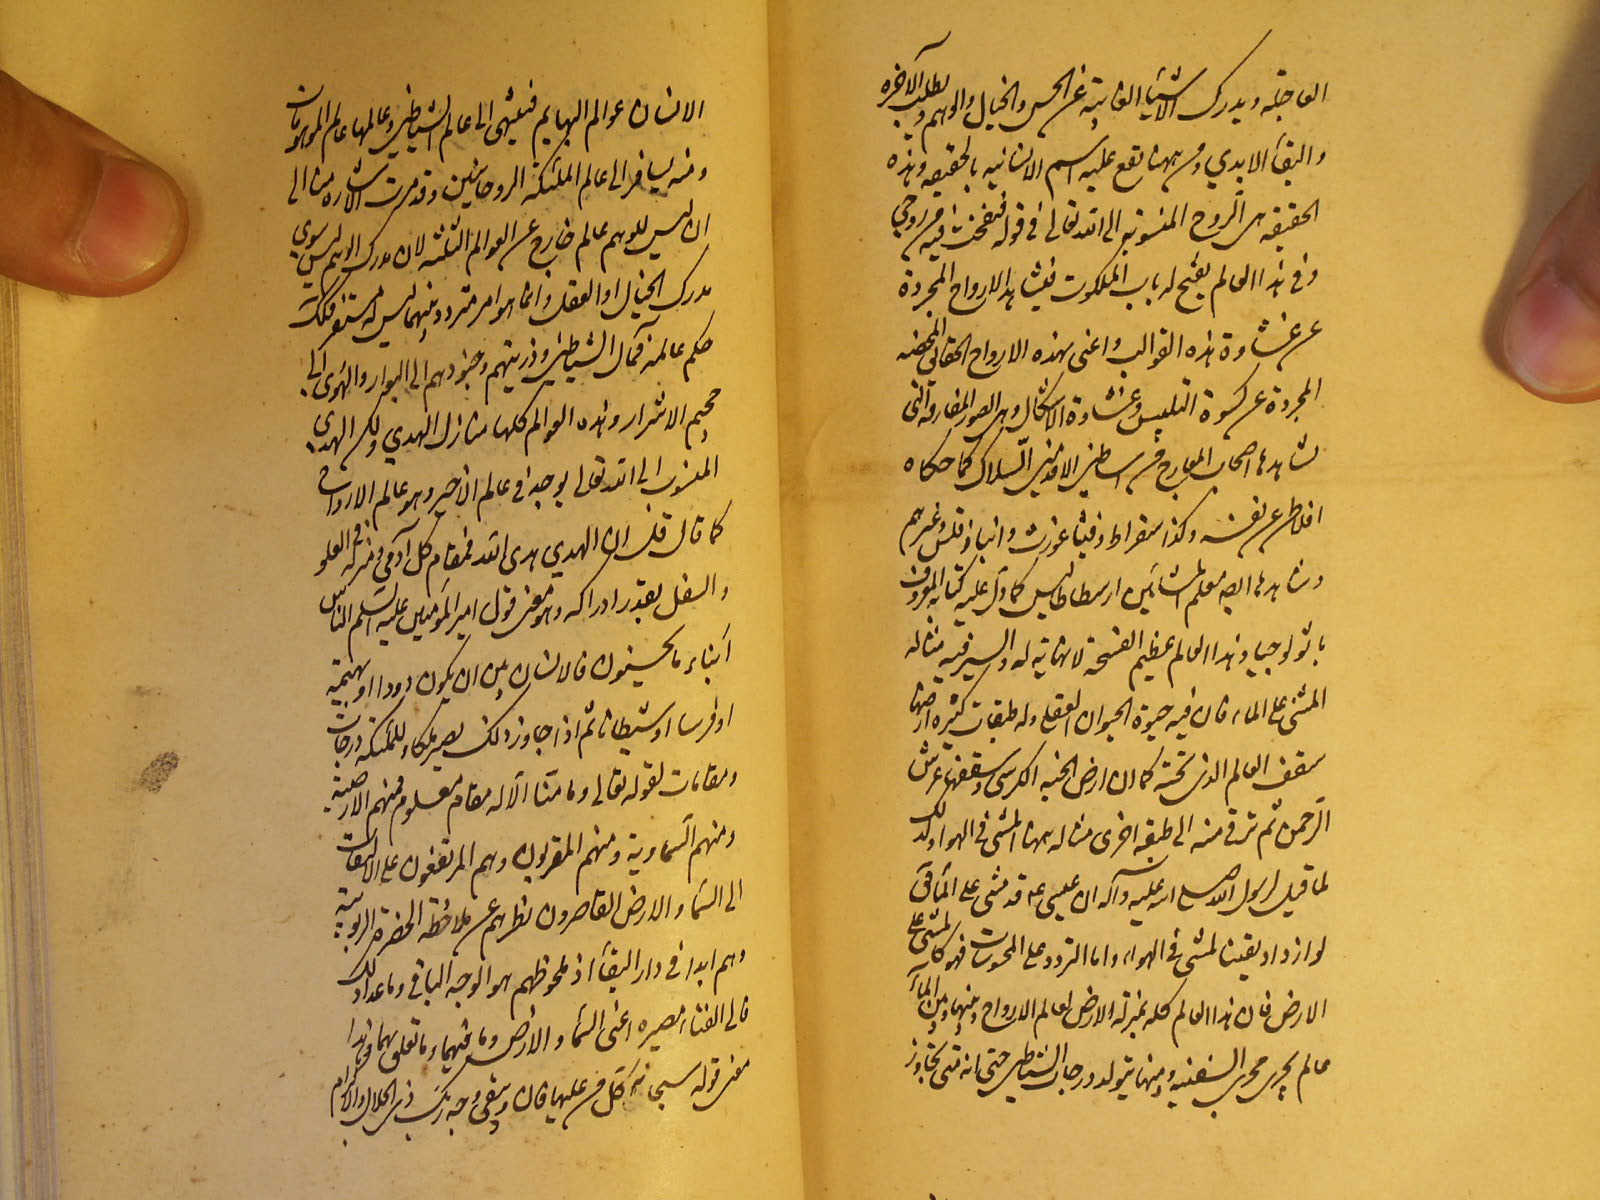 العاجلة ويدرك الاشياء الغائبة عن الحس والخيال والوهم ويطلب الآخرة
والبقاء الابدي ومن ههنا يقع عليه اسم الانسانيه بالحقيقه وهذه
الحقيقه هى الروح المنسوبة الى الله تعالى في قوله فنفخت فيه من روحي
وفى هذا العالم يفتح له باب الملكوت فيشاهد الارواح المجردة
عن غشاوة هذه القوالب واعنى بهذه الارواح الحقائق المحضه
المجردة عن كسوة التلبيس وغشاوة الاشكال وهى الصور المفارقة التى
شاهدها اصحاب المعارج من اساطين الاقدمين السلاك كما حكاه
افلاطن عن نفسه وكذا سقراط وفيثاغورث وانباذقلس وغيرهم
وشاهدها ايضا معلم المشائين ارسطاطاليس كما دل عليه كتابه المعروف
باثولوجيا وهذا العالم عظيم الفسحة لا نهاية له والسير فيه مثاله
المشى على الماء فان فيه حيوة الحيوان العقلى وله طبقات كثيره ارضها
سقف العالم الذى تحته كما ان ارض الجنه الكرسى وسقفها عرش
الرحمن ثم ترقى منه الى طبقة اخرى مثاله ههنا المشى فى الهواء ولذلك
لما قيل لرسول الله صلى الله عليه وآله ان عيسى ع قد مشى على الماء قال
لو ازداد يقينا لمشى فى الهواء واما التردد على المحسوسات فهو كالمشى على
الارض فان هذا العالم كله بمنزلة الارض لعالم الارواح وبينها وبين الماء
عالم يجرى مجرى السفينه وبينهما يتولد درجات الشياطين حتى انه متى تجاوز
الانسان عوالم البهايم فينتهى الى عالم الشياطين وعالمها عالم الموهومات
ومنه يسافر الى عالم الملئكة الروحانيين وقد مرت الاشارة منا الى
ان ليس للوهم عالم خارج عن العوالم الثلثه لان مدرك الوهم ليس سوى
مدرك الخيال او العقل وانما هو امر متردد بينهما ليس له مستقر فكذلك
حكم عالمه فمآل الشياطين وذريتهم وجنودهم الى البوار والهوى الى
جحيم الاشرار وهذه العوالم كلها منازل الهدى ولكن الهدى
المنسوب الى الله تعالى يوجد فى عالم الاخير وهو عالم الارواح
كما قال قل ان الهدى هدى الله فمقام كل آدمى ومنزله فى العلو
والسفل بقدر ادراكه وهو معنى قول امير المؤمنين عليه السلم الناس
ابناء ما يحسنون فالانسان بين ان يكون دودا او بهيمة
او فرسا او شيطانا ثم اذا جاوز ذلك يصير ملكا وللملئكة درجات
ومقامات لقوله تعالى وما منا الا له مقام معلوم فمنهم الارضية
ومنهم السماوية ومنهم المقربون وهم المرتفعون عن الالتفات
الى السماء والارض القاصرون نظرهم عن ملاحظة الحضرة الربوبية
وهم ابدا فى دار البقاء اذ ملحوظهم هو الوجه الباقى وما عدا ذلك
فالى الفناء مصيره اعنى السماء والارض وما فيهما وما تعلق بهما وهذا
معنى قوله سبحانه كل من عليها فان ويبقى وجه ربك ذى الجلال والاكرام